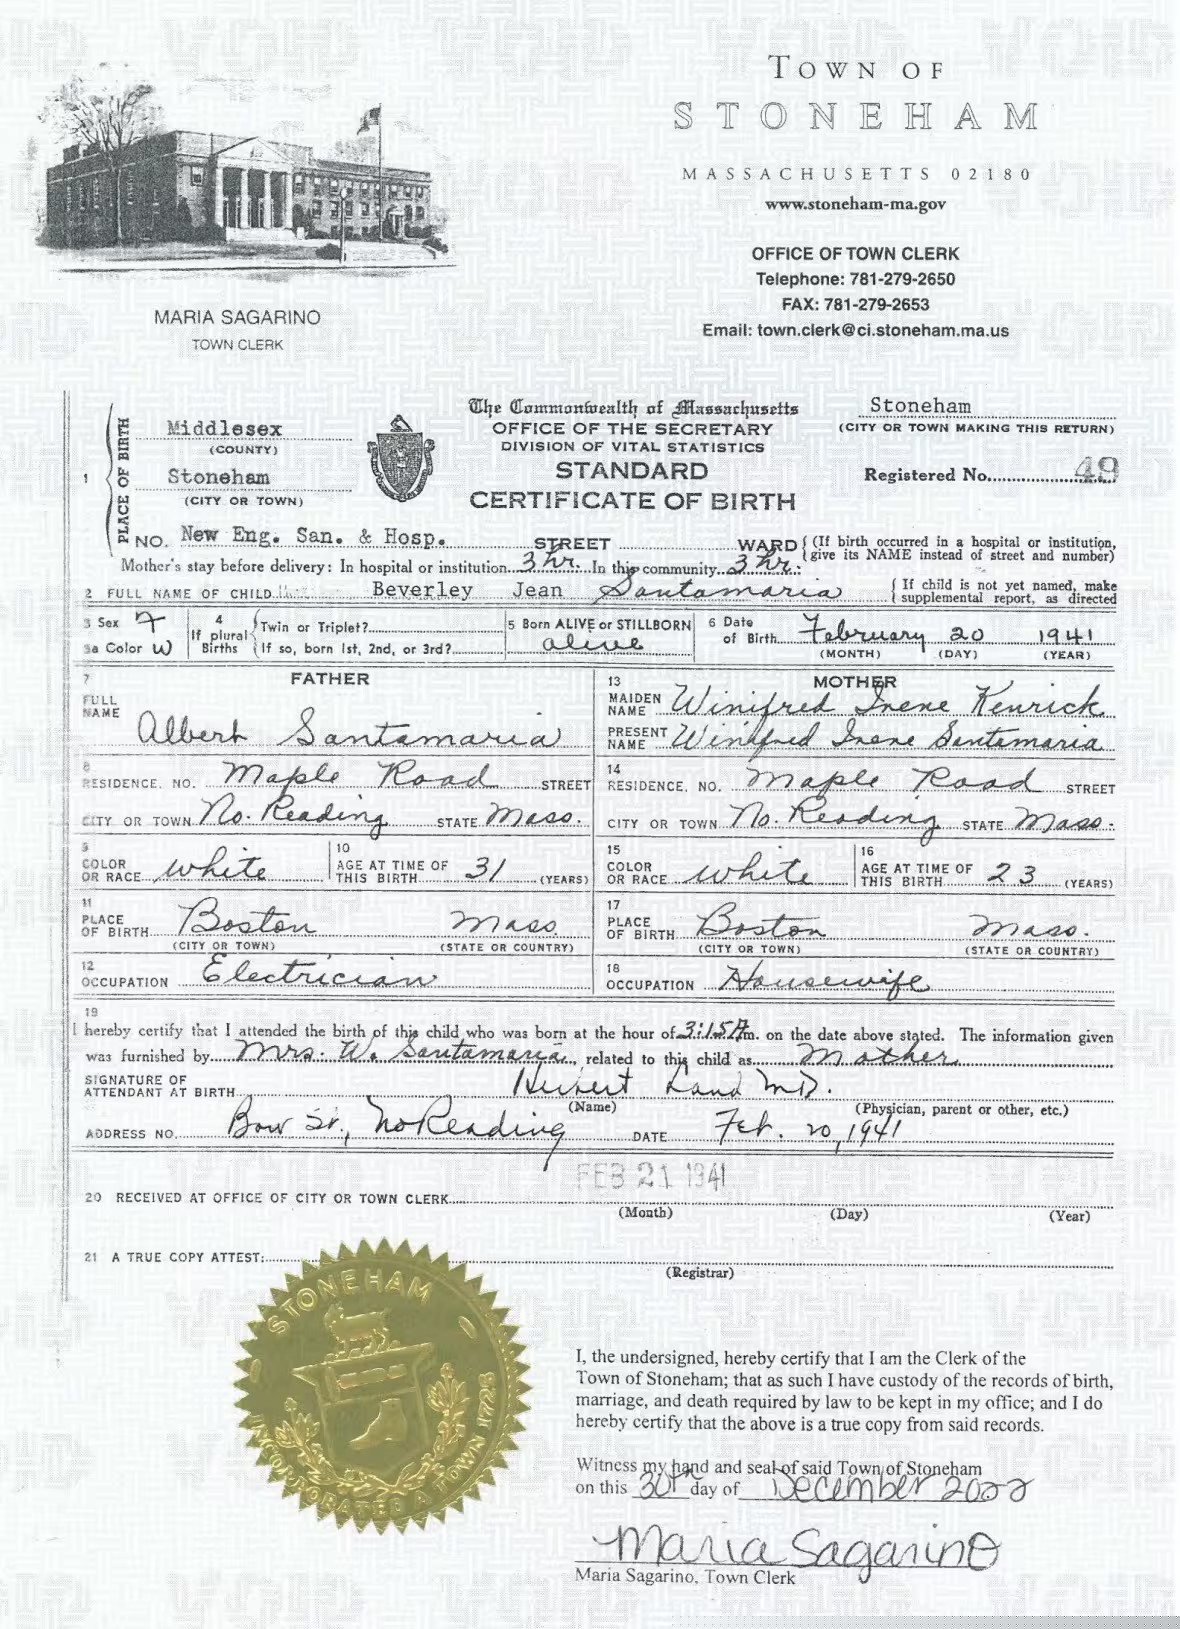 TOWN OF
STONEHAM
MASSACHUSETTS 02180
www.stoneham-ma.gov
OFFICE OF TOWN CLERK
Telephone: 781-279-2650
FAX: 781-279-2653
Email: town.clerk@ci.stoneham.ma.us
MARIA SAGARINO
TOWN CLERK
The Commonwealth of Massachusetts
OFFICE OF THE SECRETARY
DIVISION OF VITAL STATISTICS
STANDARD
CERTIFICATE OF BIRTH
Stoneham
(CITY OR TOWN MAKING THIS RETURN)
Registered No. 49
1 PLACE OF BIRTH
Middlesex
(COUNTY)
Stoneham
(CITY OR TOWN)
NO. New Eng. San. & Hosp. STREET WARD (If birth occurred in a hospital or institution, give its NAME instead of street and number)
Mother's stay before delivery: In hospital or institution 3 hr. In this community 3 hr.
2 FULL NAME OF CHILD Beverley Jean Santamaria (If child is not yet named, make supplemental report, as directed
3 Sex F
3a Color W
4 If plural Births
Twin or Triplet?
If so, born 1st, 2nd, or 3rd?
5 Born ALIVE or STILLBORN
alive
6 Date of Birth February 20 1941
(MONTH) (DAY) (YEAR)
7 FATHER
FULL NAME Albert Santamaria
8 RESIDENCE, NO. Maple Road STREET
CITY OR TOWN No. Reading STATE Mass.
9 COLOR OR RACE white
10 AGE AT TIME OF THIS BIRTH 31 (YEARS)
11 PLACE OF BIRTH Boston Mass.
(CITY OR TOWN) (STATE OR COUNTRY)
12 OCCUPATION Electrician
13 MOTHER
MAIDEN NAME Winifred Irene Kenrick
PRESENT NAME Winifred Irene Santamaria
14 RESIDENCE, NO. Maple Road STREET
CITY OR TOWN No. Reading STATE Mass.
15 COLOR OR RACE white
16 AGE AT TIME OF THIS BIRTH 23 (YEARS)
17 PLACE OF BIRTH Boston Mass.
(CITY OR TOWN) (STATE OR COUNTRY)
18 OCCUPATION Housewife
19
I hereby certify that I attended the birth of this child who was born at the hour of 3:15 A.m. on the date above stated. The information given
was furnished by Mrs. W. Santamaria, related to this child as Mother
SIGNATURE OF ATTENDANT AT BIRTH Herbert MD.
(Name) (Physician, parent or other, etc.)
ADDRESS NO. Bow St., No Reading DATE Feb. 20, 1941
FEB 21 1941
20 RECEIVED AT OFFICE OF CITY OR TOWN CLERK
(Month) (Day) (Year)
21 A TRUE COPY ATTEST:
(Registrar)
STONEHAM
INCORPORATED A TOWN 1725
I, the undersigned, hereby certify that I am the Clerk of the
Town of Stoneham; that as such I have custody of the records of birth,
marriage, and death required by law to be kept in my office; and I do
hereby certify that the above is a true copy from said records.
Witness my hand and seal of said Town of Stoneham
on this 30th day of December 2022
Maria Sagarino
Maria Sagarino, Town Clerk